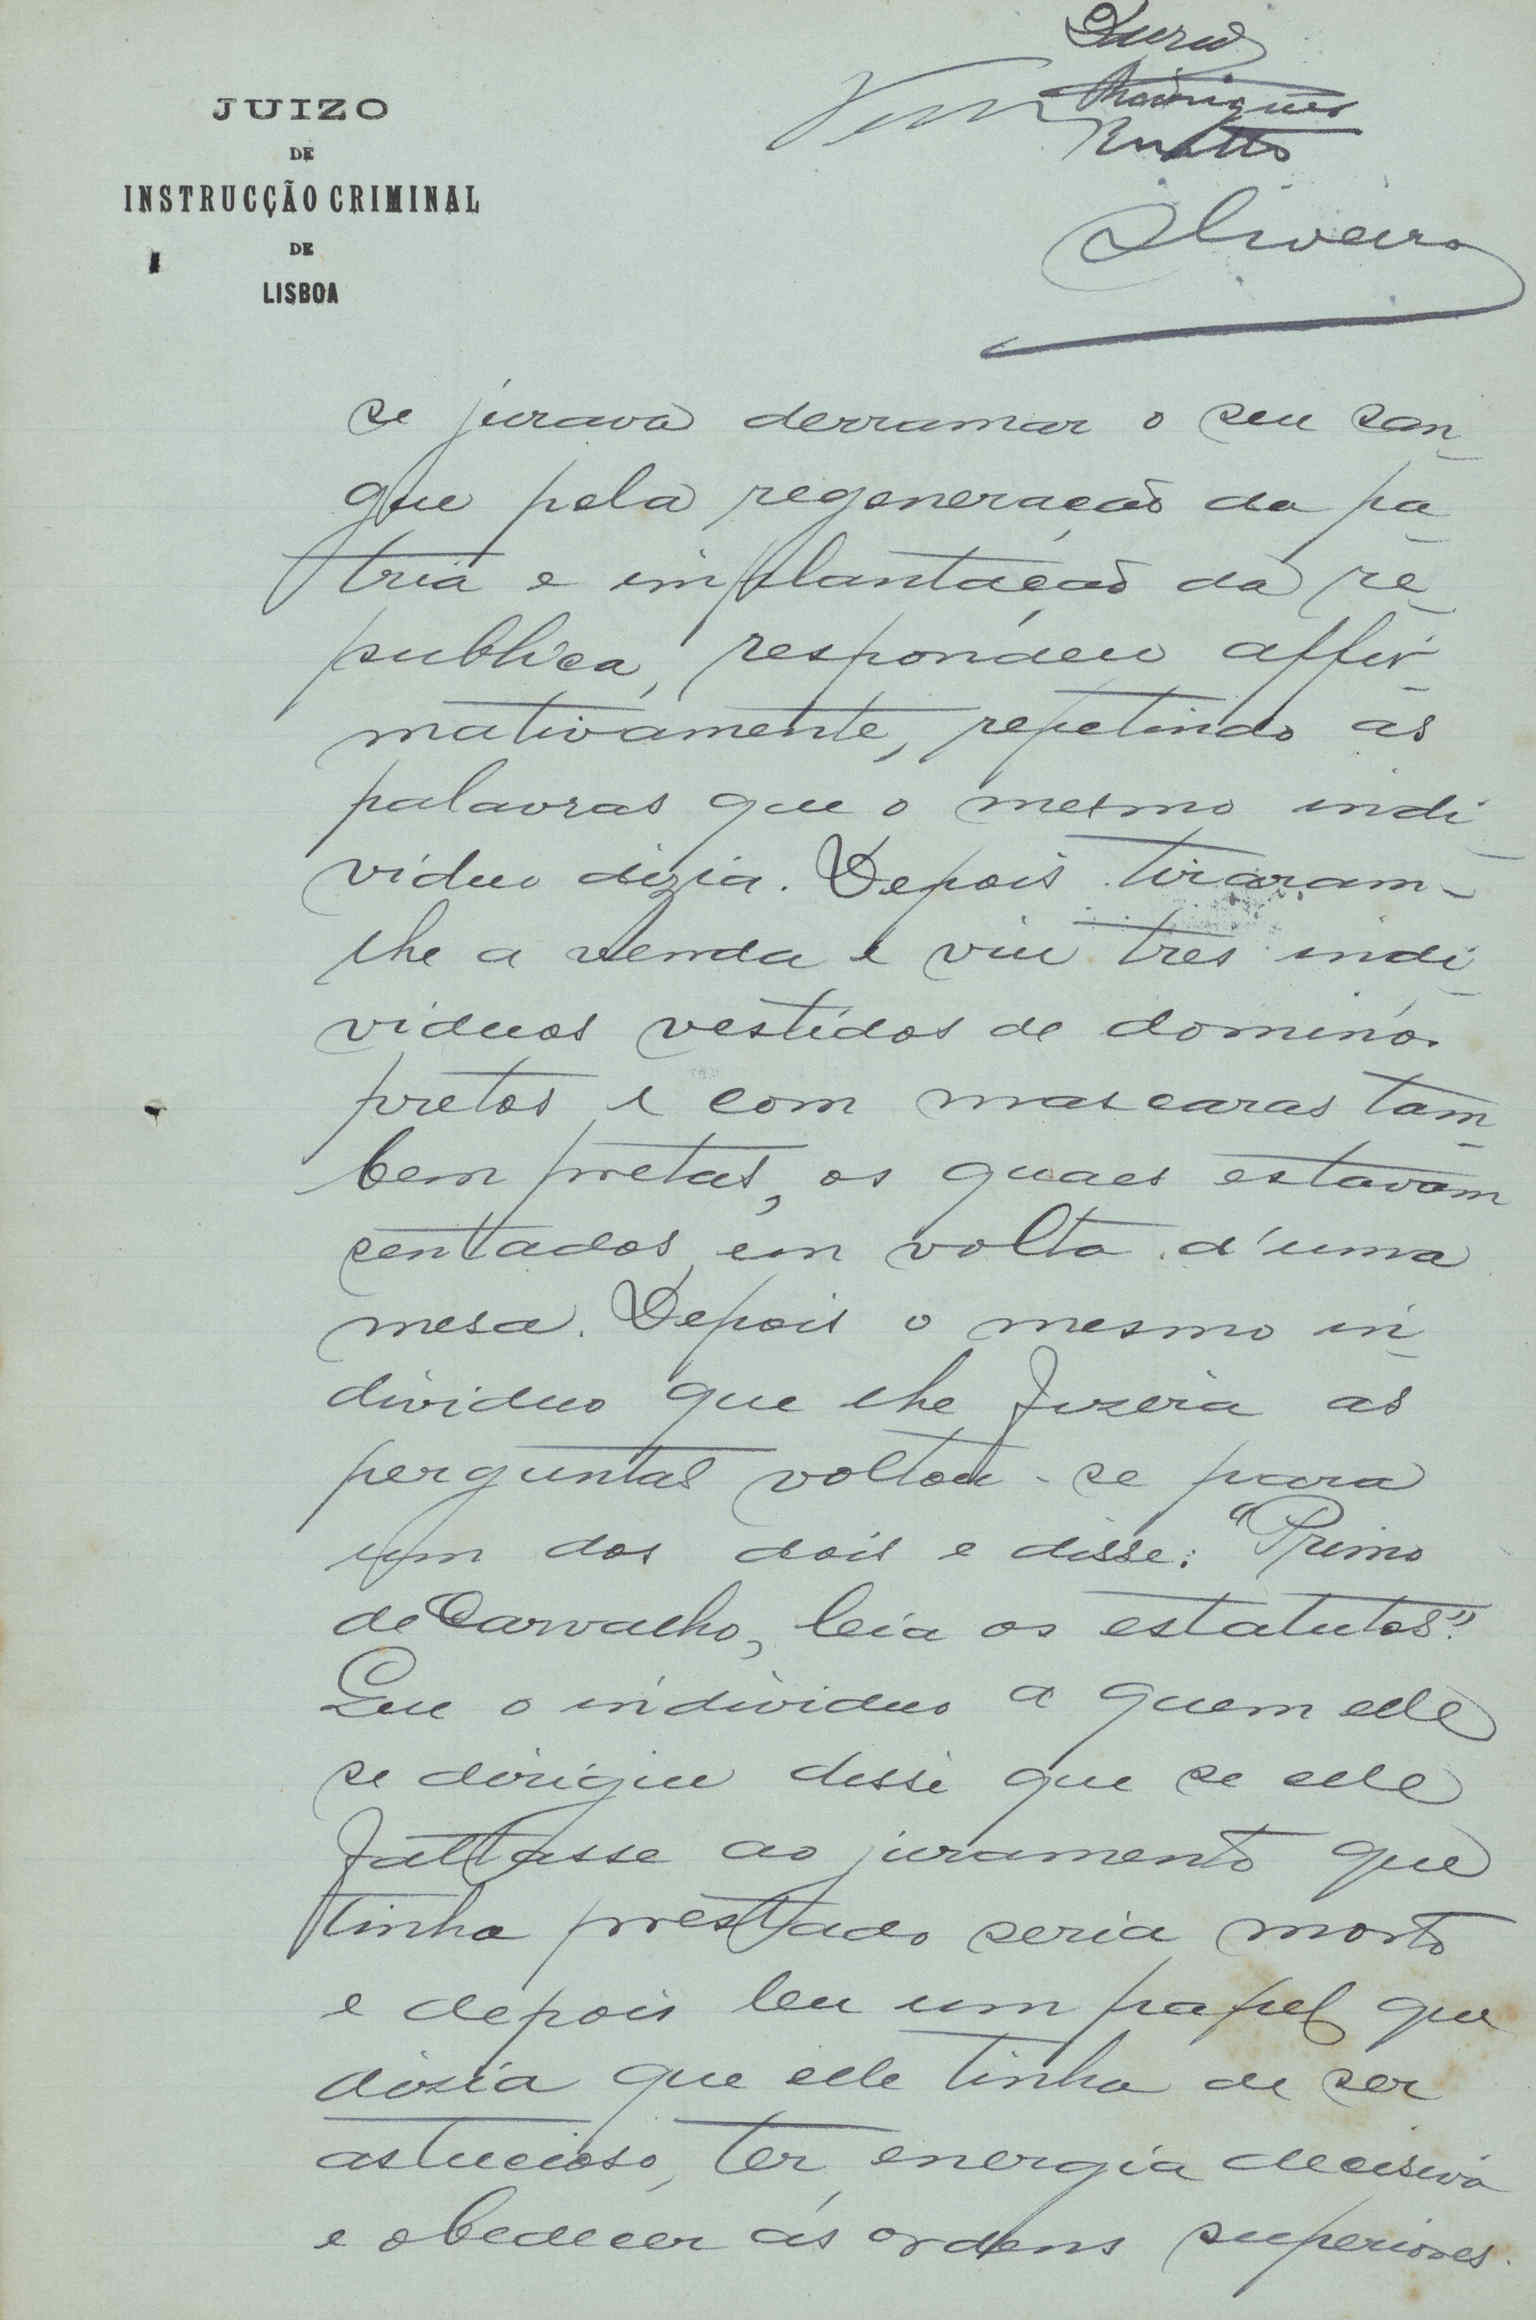 JUIZO
DE
INSTRUCÇÃO CRIMINAL
DE
LISBOA
Rodrigues
Oliveira
se jurava derramar o seu san-
gue pela regeneração da pa-
tria e implantação da re-
publica, respondeu affir-
mativamente, repetindo as
palavras que o mesmo indi-
viduo dizia. Depois tiraram-
lhe a venda e viu tres indi-
viduos vestidos de dominós
pretos e com mascaras tam-
bem pretas, os quaes estavam
sentados em volta d'uma
mesa. Depois o mesmo in-
dividuo que lhe fizera as
perguntas voltou-se para
um dos dois e disse: "Primo
de Carvalho, leia os estatutos".
Que o individuo a quem elle
se dirigiu disse que se elle
faltasse ao juramento que
tinha prestado seria morto
e depois leu um papel que
dizia que elle tinha de ser
astucioso, ter energia decisiva
e obedecer ás ordens superiores.